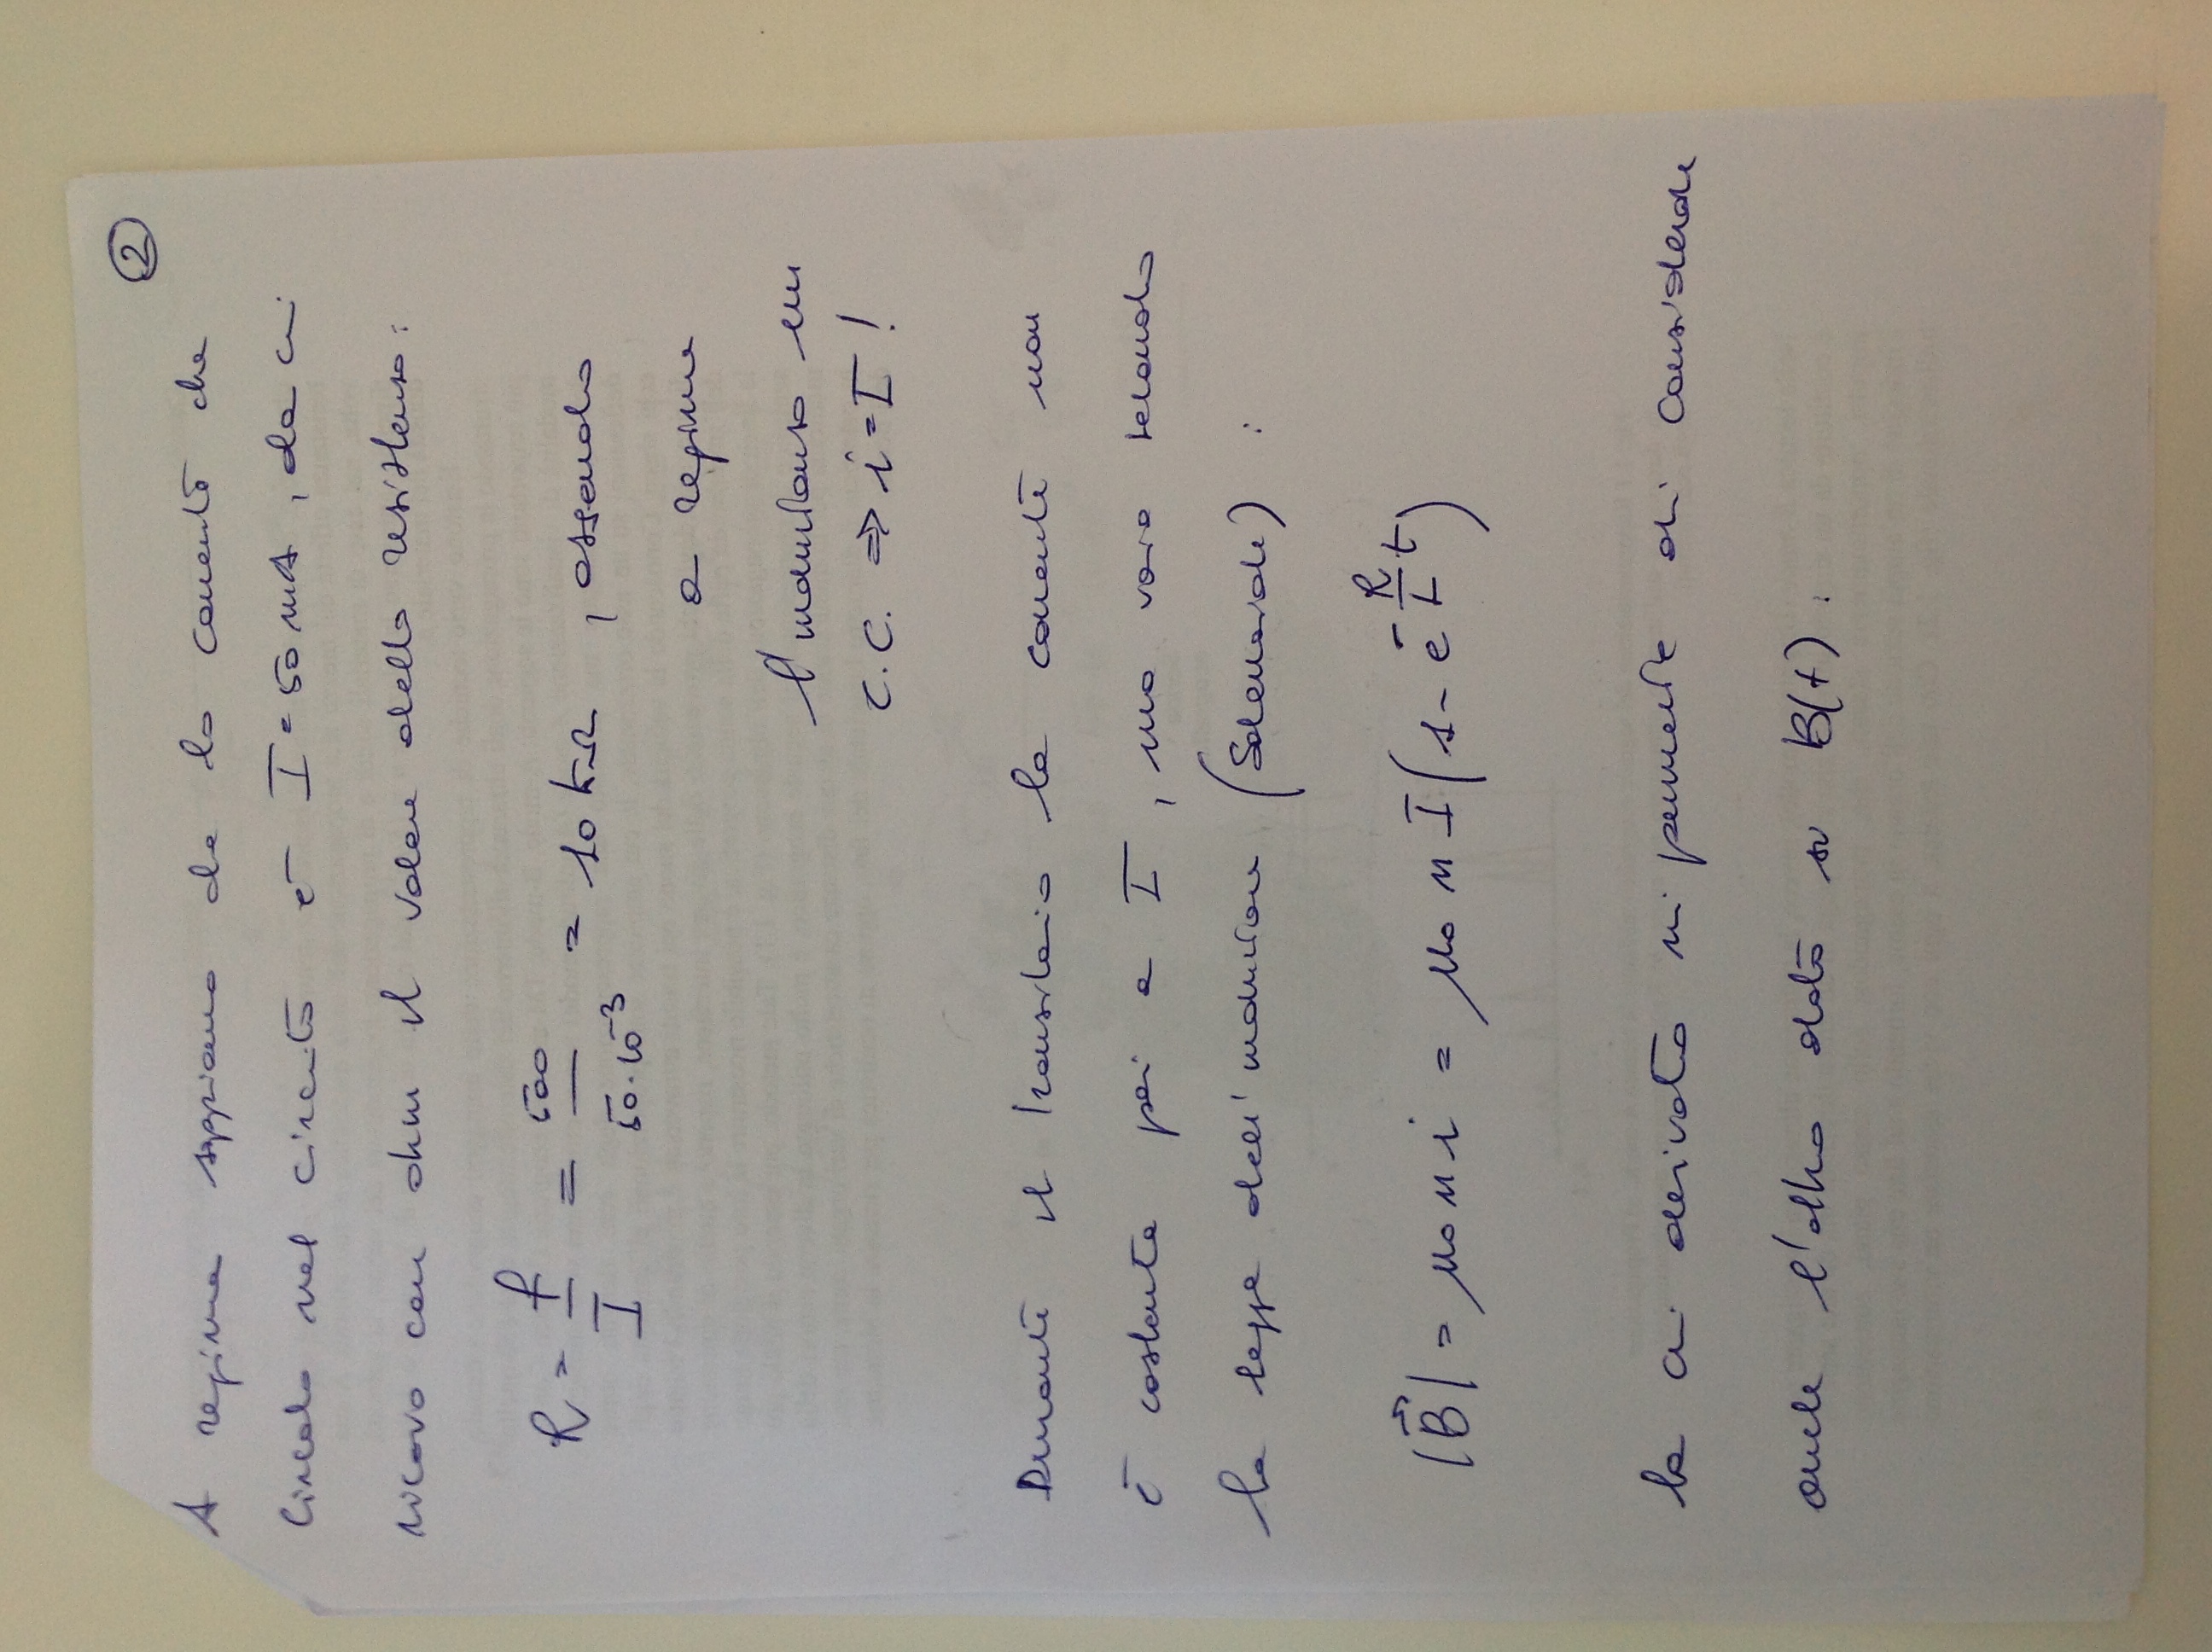 ②
A regime sappiamo che la corrente che
circola nel circuito è I = 50 mA , da cui
ricavo con ohm il valore della resistenza :
R = f/I = 500/50·10⁻³ = 10 kΩ , essendo
a regime
l'induttanza un
c.c. ⇒ i = I !
Durante il transitorio la corrente non
è costante pari a I , ma varia secondo
la legge dell'induzione (Solenoide) :
|B⃗| = μ₀ n i = μ₀ n I (1 - e^(-R/L t))
la cui derivata mi permette di considerare
anche l'altro dato su B(t) .